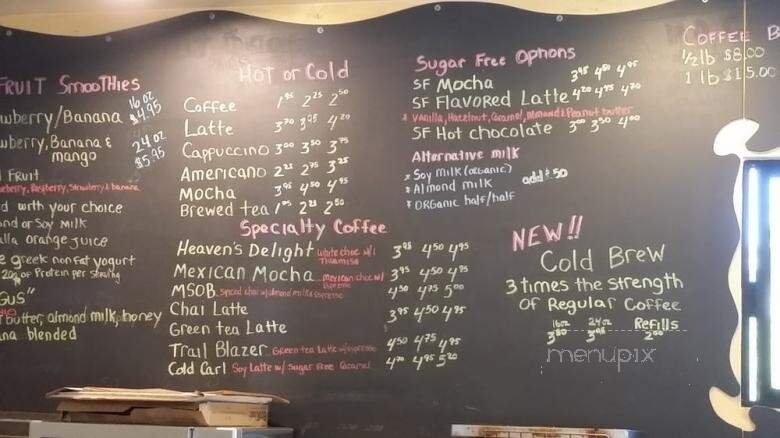 FRUIT SmooThies
16 oz
$4.95
wberry/Banana
wberry, Banana &
mango
24 oz
$5.95
Fruit
Raspberry, Strawberry & banana
d with your choice
nd or Soy milk
lla orange juice
e greek nonfat yogurt
20g of Protein per serving
GUS"
butter, almond milk, honey
na blended
HOT or Cold
Coffee 1.95 2.25 2.50
Latte 3.70 3.95 4.20
Cappuccino 3.00 3.50 3.75
Americano 2.25 2.75 3.25
Mocha 3.95 4.50 4.95
Brewed tea 1.95 2.25 2.50
Specialty Coffee
Heaven's Delight white choc w/ Tiramisu 3.95 4.50 4.95
Mexican Mocha mexican choc w/ Espresso 3.95 4.50 4.95
MSOB spiced chai w/ almond milk & Espresso 4.50 4.75 5.00
Chai Latte 3.95 4.50 4.95
Green tea Latte
Trail Blazer Green tea Latte w/ espresso 4.50 4.75 4.95
Cold Carl Soy Latte w/ Sugar Free Caramel 4.70 4.95 5.20
Sugar Free Options
SF Mocha 3.95 4.50 4.95
SF Flavored Latte 4.20 4.45 4.70
* Vanilla, Hazelnut, Caramel, Almond & Peanut butter
SF Hot chocolate 3.00 3.50 4.00
Alternative milk
* Soy milk (organic)
* Almond milk add $.50
* ORGanic half/half
NEW!!
Cold Brew
3 times the strength
of Regular Coffee
16oz 24oz Refills
3.50 2.00
menupix
COFFEE B
1/2 lb $8.00
1 lb $15.00